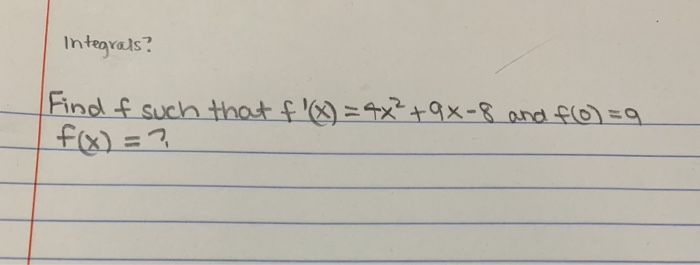 Integrals?
Find f such that f'(x) = 4x² + 9x - 8 and f(0) = 9
f(x) = ?